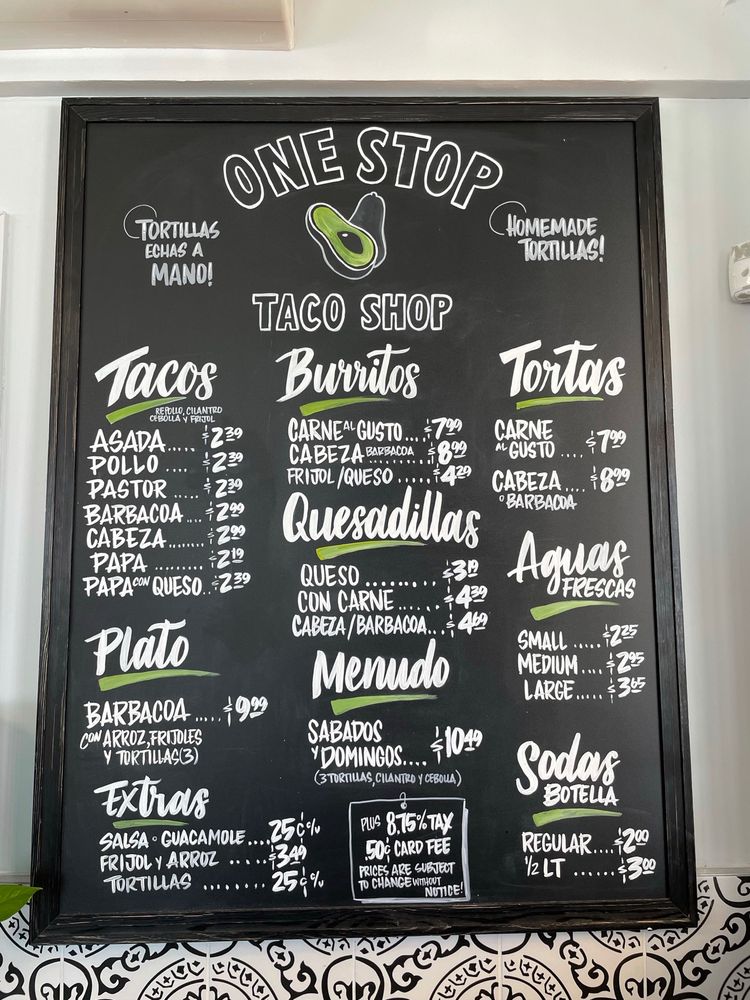 ONE STOP
TORTILLAS
ECHAS A
MANO!
HOMEMADE
TORTILLAS!
TACO SHOP
Tacos
REPOLLO, CILANTRO
CEBOLLA Y FRIJOL
ASADA..... $2.39
POLLO .... $2.39
PASTOR ..... $2.39
BARBACOA ... $2.99
CABEZA....... $2.99
PAPA ......... $2.19
PAPA CON QUESO.. $2.39
Plato
BARBACOA ..... $9.99
CON ARROZ, FRIJOLES
Y TORTILLAS(3)
Extras
SALSA O GUACAMOLE.... 25¢ c/u
FRIJOL Y ARROZ ..... $3.49
TORTILLAS ........ 25¢ c/u
Burritos
CARNE AL GUSTO.... $7.99
CABEZA BARBACOA .... $8.99
FRIJOL/QUESO ..... $4.29
Quesadillas
QUESO ........ $3.19
CON CARNE...... $4.39
CABEZA/BARBACOA... $4.69
Menudo
SABADOS
Y DOMINGOS.... $10.49
(3 TORTILLAS, CILANTRO Y CEBOLLA)
PLUS 8.75% TAX
.50¢ CARD FEE
PRICES ARE SUBJECT
TO CHANGE WITHOUT
NOTICE!
Tortas
CARNE
AL GUSTO .... $7.99
CABEZA.... $8.99
O BARBACOA
Aguas
FRESCAS
SMALL .... $2.25
MEDIUM .... $2.95
LARGE..... $3.65
Sodas
BOTELLA
REGULAR... $2.00
1/2 LT ...... $3.00